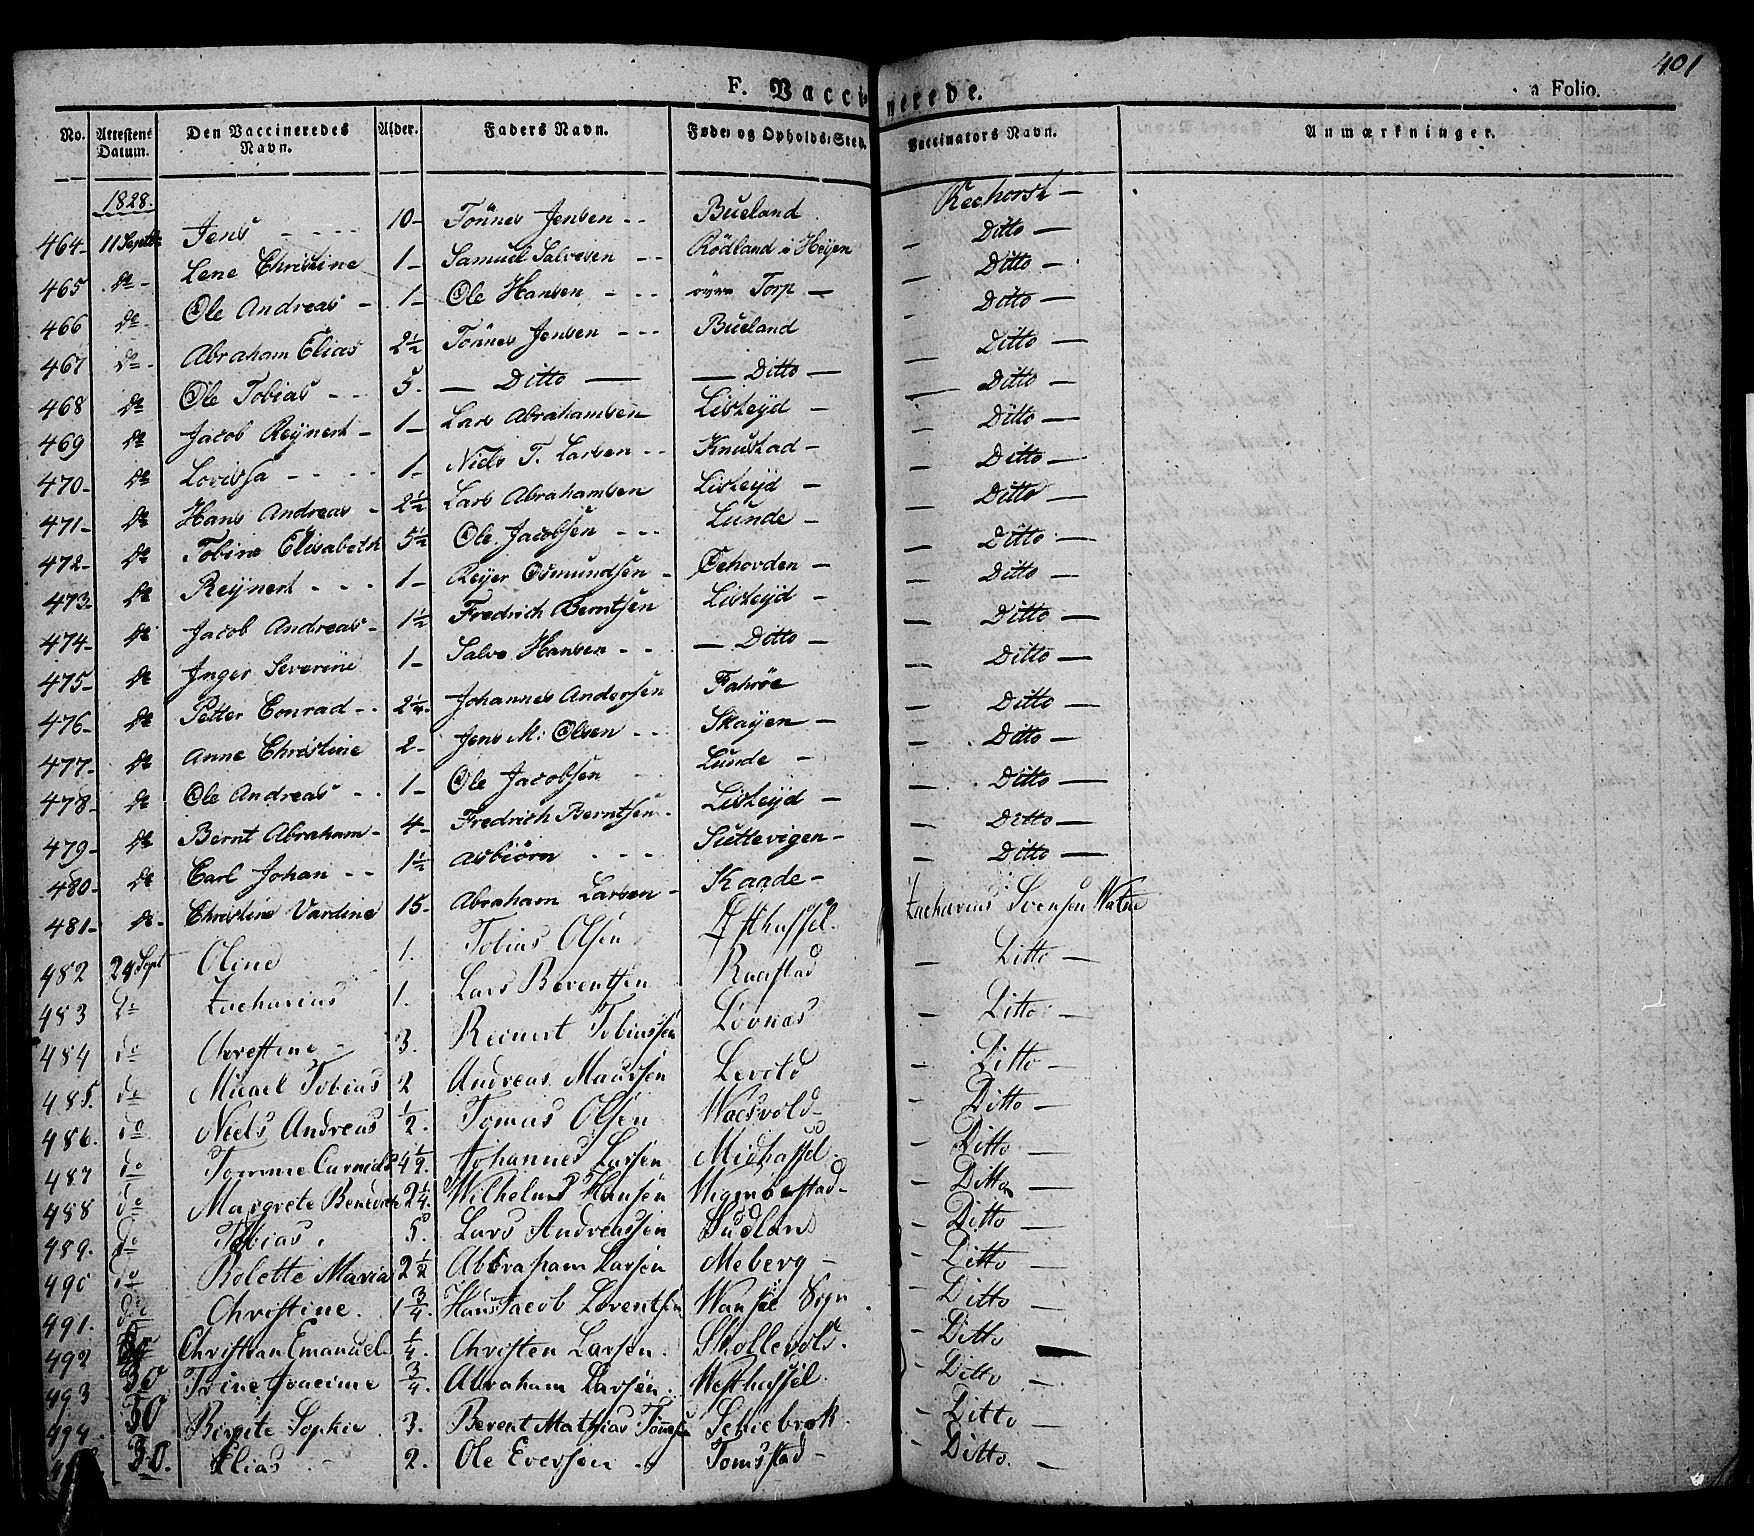 401
F. Vaccinerede. a Folio.
No. Attestens Datum. Den Vaccineredes Navn. Alder. Faders Navn. Føde- og Opholds-Sted. Vaccinators Navn. Anmærkninger.
1828.
464- 11 Septbr Jens - - - - 10- Tönnes Jensen - - Bueland Rechorst -
465 do - Lene Christine 1- Samuel Salvesen - - Rödland i Heijen - Ditto -
466 do - Ole Andreas - 1- Ole Hansen - - - øvre Torp - - Ditto -
467 do - Abraham Elias 2½ Tönnes Jensen - - - Bueland - Ditto -
468 do Ole Tobias - - 5. - Ditto - - Ditto - - Ditto -
469 do Jacob Reijnert - 1- Lars Abrahamsen Listeijd - - Ditto -
470- do Lovissa - - - - 1- Niels T. Larsen - - Knustad - - Ditto -
471- do Hans Andreas - 2½ Lars Abrahamsen Listeijd - - Ditto -
472- do Tobine Elisabeth 5½ Ole Jacobsen - - - Lunde - - Ditto -
473- do Reijnert - - - 1- Reijer Osmundsen - Øehovden - - Ditto -
474- do Jacob Andreas- 1½ Fredrich Berntsen Listeijd - - Ditto -
475- do Inger Severine 1- Salve Hansen - - - Ditto - - Ditto -
476- do Petter Conrad - - 2¼- Johannes Andersen Fahröe - Ditto -
477- do Anne Christine 2- Jens M: Olsen - - Skaijen - - Ditto -
478- do Ole Andreas - - 1- Ole Jacobsen - - Lunde - - Ditto -
479- do Bernt Abraham- 4- Fredrich Berntsen- Listeijd - - Ditto -
480- do Carl Johan - - 1½ Asbiörn - - - Suttevigen- - Ditto -
481- do- Christine Vardine 15- Abraham Larsen - Kaade- Zacharias Svensen
482 24 Sept Oline 1. Tobias Olsen - Ditto -
483 do Zacharias 1. Lars Berentsen Raastad - Ditto -
484 do Christine - 3. Reinert Tobiassen Lövnas - Ditto -
485. do Micael Tobias 2 Andreas Maursen Levold - Ditto -
486. do Niels Andreas ½. Tomas Olsen - Ditto -
487 do Tomine 4½. Johannes Larsen Midhassel. - Ditto -
488 do Margrete 2¼. Wilhelm Hansen - Ditto -
489. do Tobias. 5. Lars Andreassen - Ditto -
490 do Bolette Maria 2½ Abraham Larsen Meberg - - Ditto -
491. do Christine. 1¾. Hans Jacob Lorentsen Wanse Sogn. - Ditto
492 Christian Emanuel ¼. Christen Larsen. Skollevold. - Ditto
493 30 Trine Joacime ¾. Abraham Larsen. Westhassel. - Ditto -
494. 30 Birgite Sophie. 3. Berent Mathias - Ditto -
30. Elias - 2. Ole Eversen - Tomstad - - Ditto. -